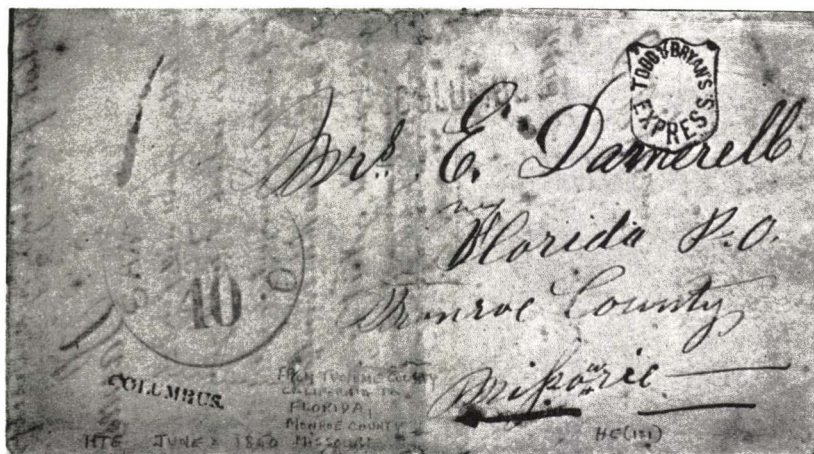 TODD & BRYAN'S
EXPRESS
COLUMBUS
Mrs. E. Damerell
Florida P.O.
Monroe County
Missourie
10
COLUMBUS.
FROM TUOLUMNE COUNTY
CALIFORNIA TO
FLORIDA,
MONROE COUNTY
MISSOURI
HTE JUNE 1860
HC(121)